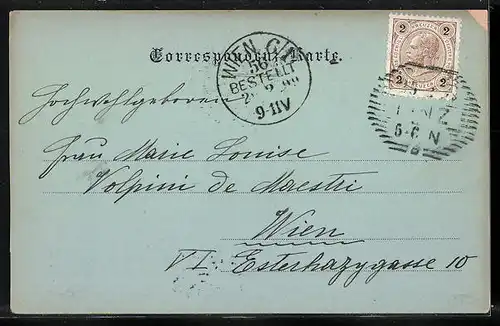 Correspondenz-Karte.
2 KREUZER 2
2 2
WIEN
56
BESTELLT
9-11V
LINZ
5-6 N
Hochwohlgeboren
Frau Marie Louise
Volpini de Maestri
Wien
VI. Esterhazygasse 10